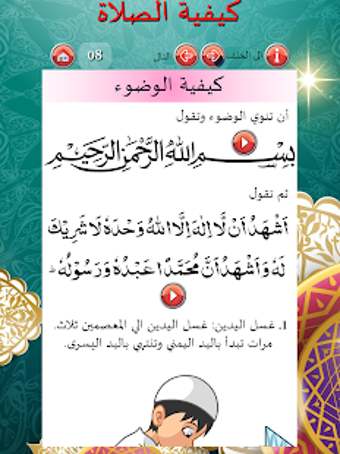 كيفية الصلاة
08 التالي الى الخلف
كيفية الوضوء
أن تنوي الوضوء وتقول
بسم الله الرحمن الرحيم
ثم تقول
اَشْهَدُ اَنْ لَّا اِلٰهَ اِلَّا اللهُ وَحْدَهٗ لَا شَرِيْكَ
لَهٗ وَاَشْهَدُ اَنَّ مُحَمَّدًا عَبْدُهٗ وَرَسُوْلُهٗ
1. غسل اليدين: غسل اليدين الي المعصمين ثلاث
مرات تبدأ باليد اليمني وتنتهي باليد اليسرى.